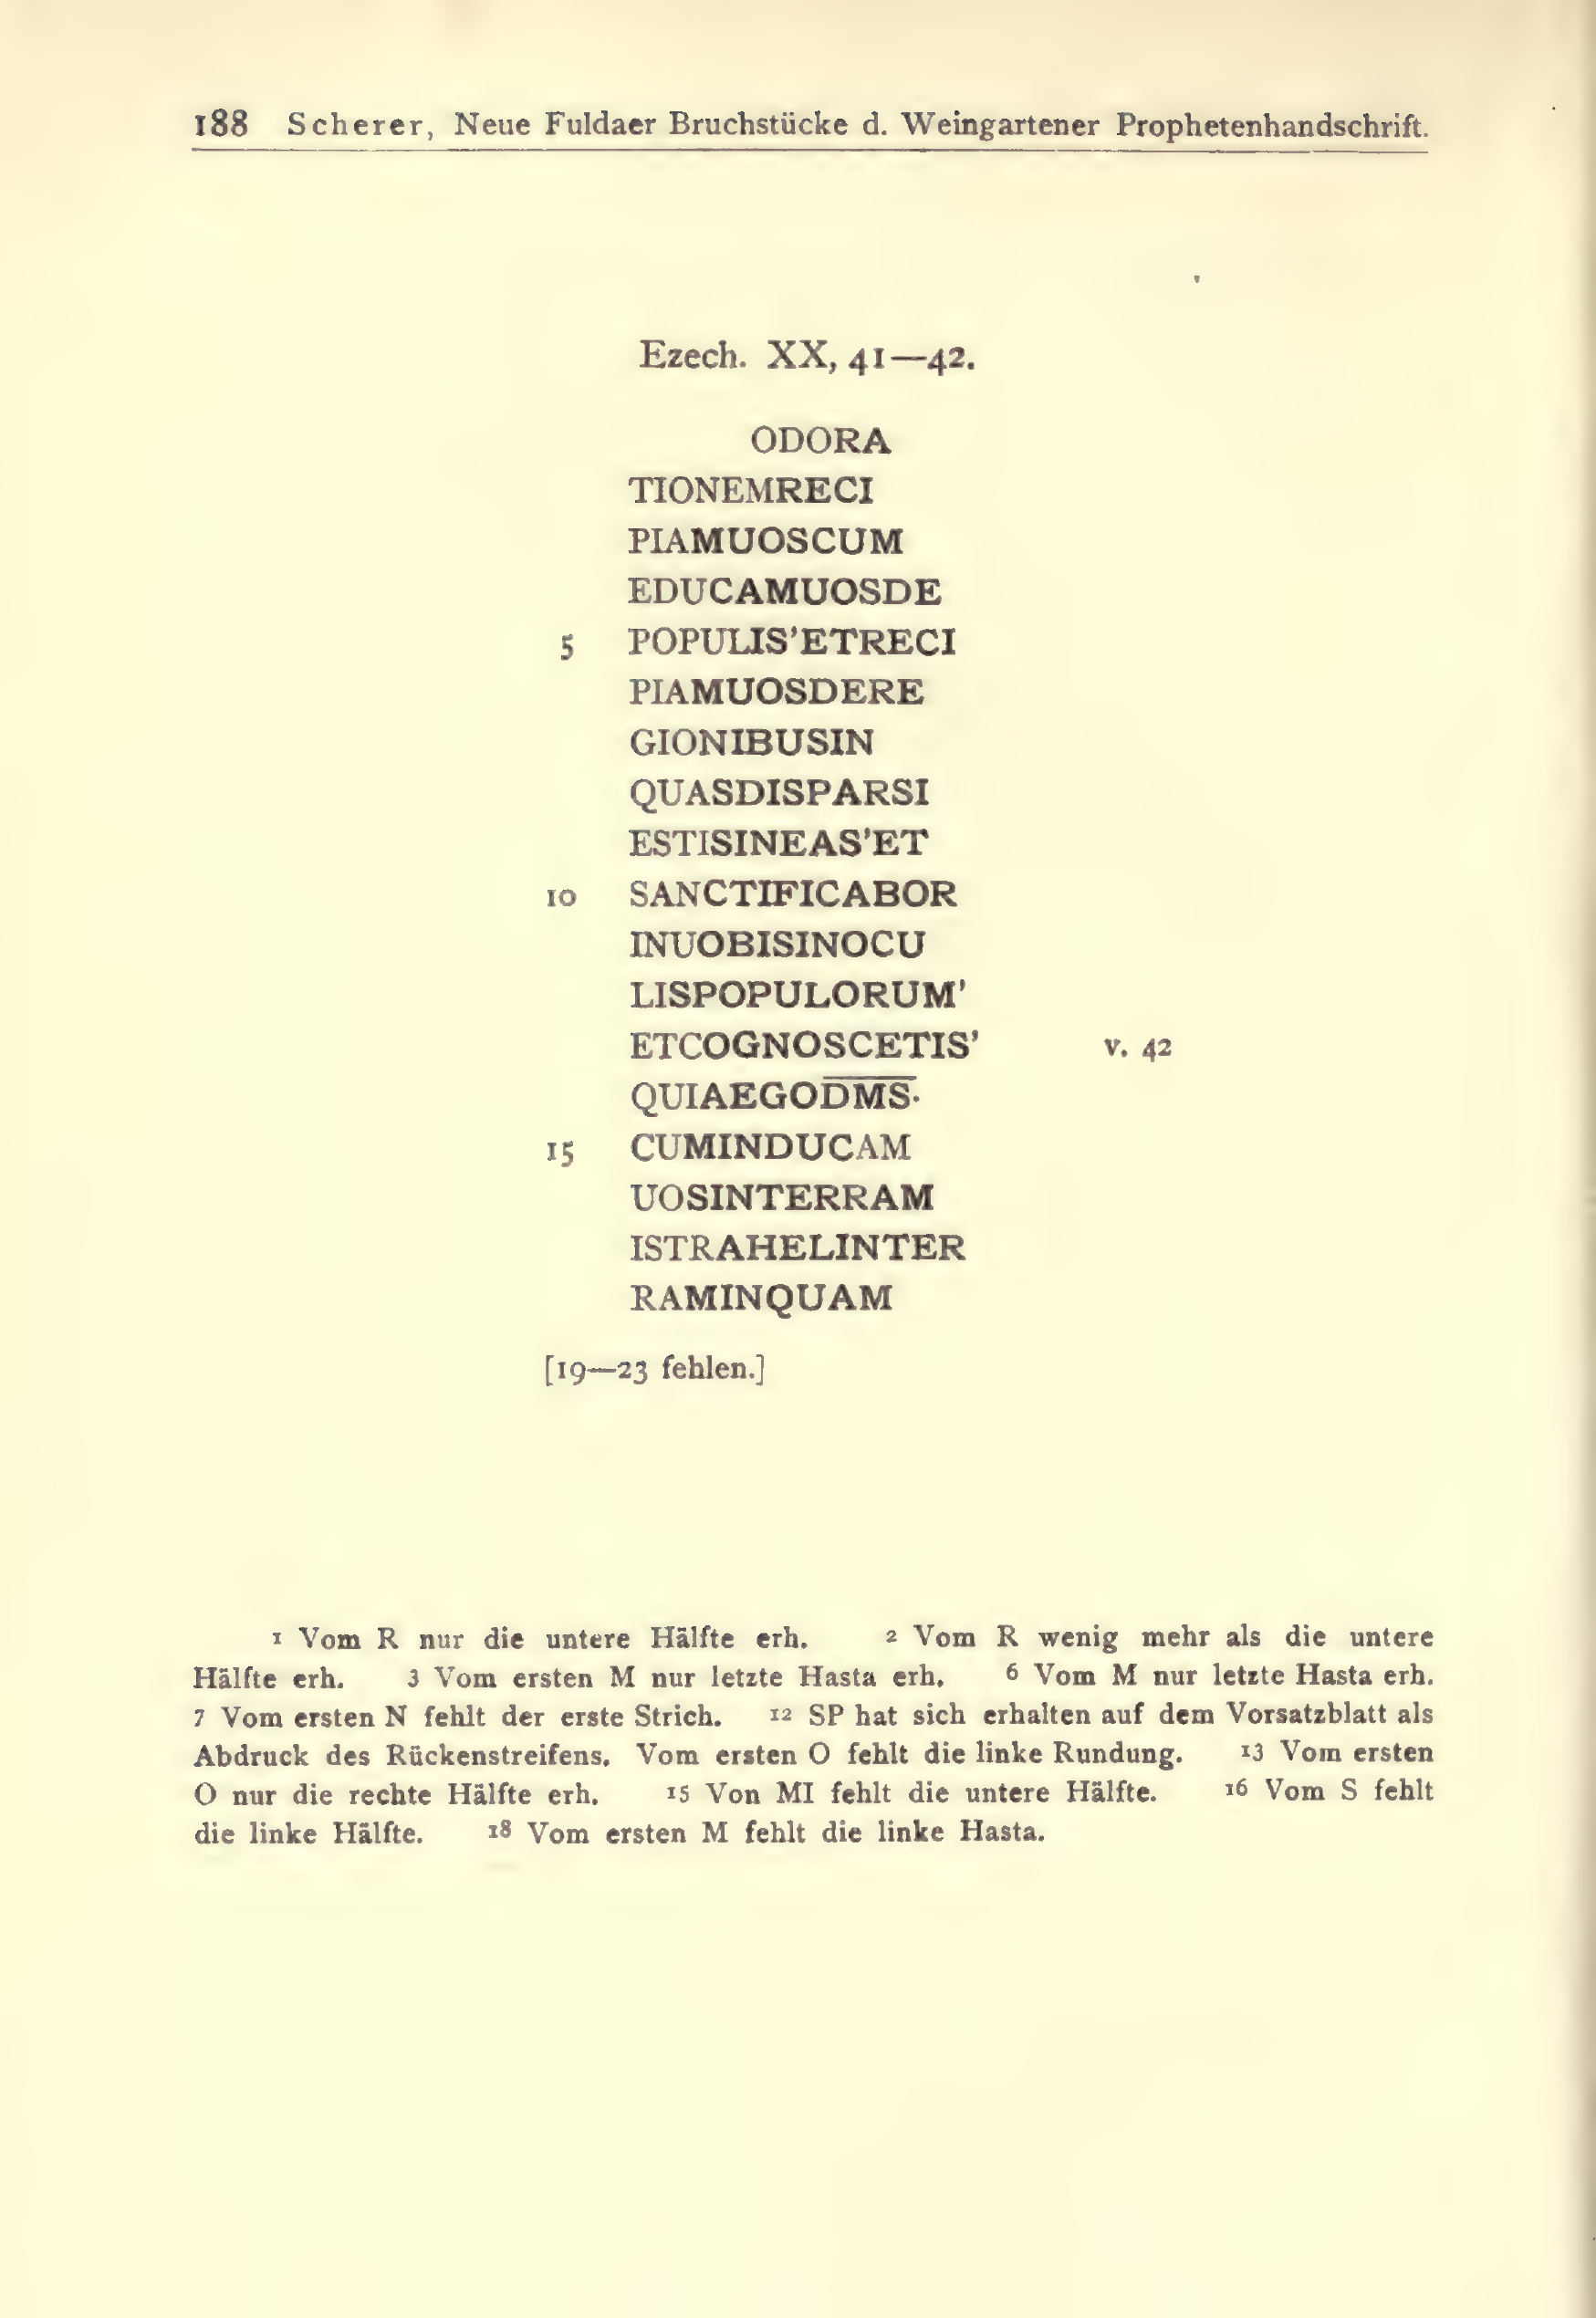 188 Scherer, Neue Fuldaer Bruchstücke d. Weingartener Prophetenhandschrift.
Ezech. XX, 41—42.
ODORA
TIONEMRECI
PIAMUOSCUM
EDUCAMUOSDE
5 POPULIS'ETRECI
PIAMUOSDERE
GIONIBUSIN
QUASDISPARSI
ESTISINEAS'ET
10 SANCTIFICABOR
INUOBISINOCU
LISPOPULORUM'
ETCOGNOSCETIS' v. 42
QUIAEGOD̅M̅S̅·
15 CUMINDUCAM
UOSINTERRAM
ISTRAHELINTER
RAMINQUAM
[19—23 fehlen.]
1 Vom R nur die untere Hälfte erh. 2 Vom R wenig mehr als die untere
Hälfte erh. 3 Vom ersten M nur letzte Hasta erh. 6 Vom M nur letzte Hasta erh.
7 Vom ersten N fehlt der erste Strich. 12 SP hat sich erhalten auf dem Vorsatzblatt als
Abdruck des Rückenstreifens. Vom ersten O fehlt die linke Rundung. 13 Vom ersten
O nur die rechte Hälfte erh. 15 Von MI fehlt die untere Hälfte. 16 Vom S fehlt
die linke Hälfte. 18 Vom ersten M fehlt die linke Hasta.